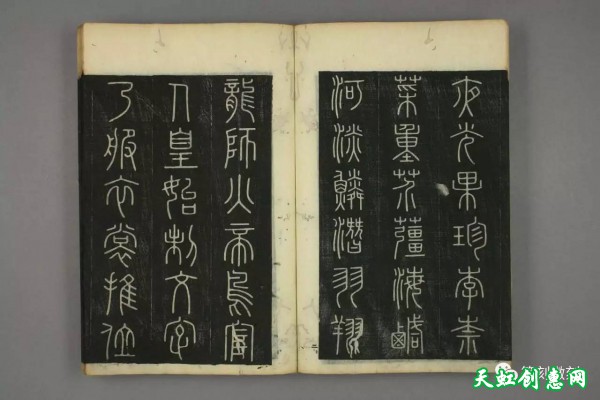 夜光果珍李柰
菜重芥薑海鹹
河淡鱗潛羽翔
龍師火帝鳥官
人皇始制文字
乃服衣裳推位
天虹创惠网